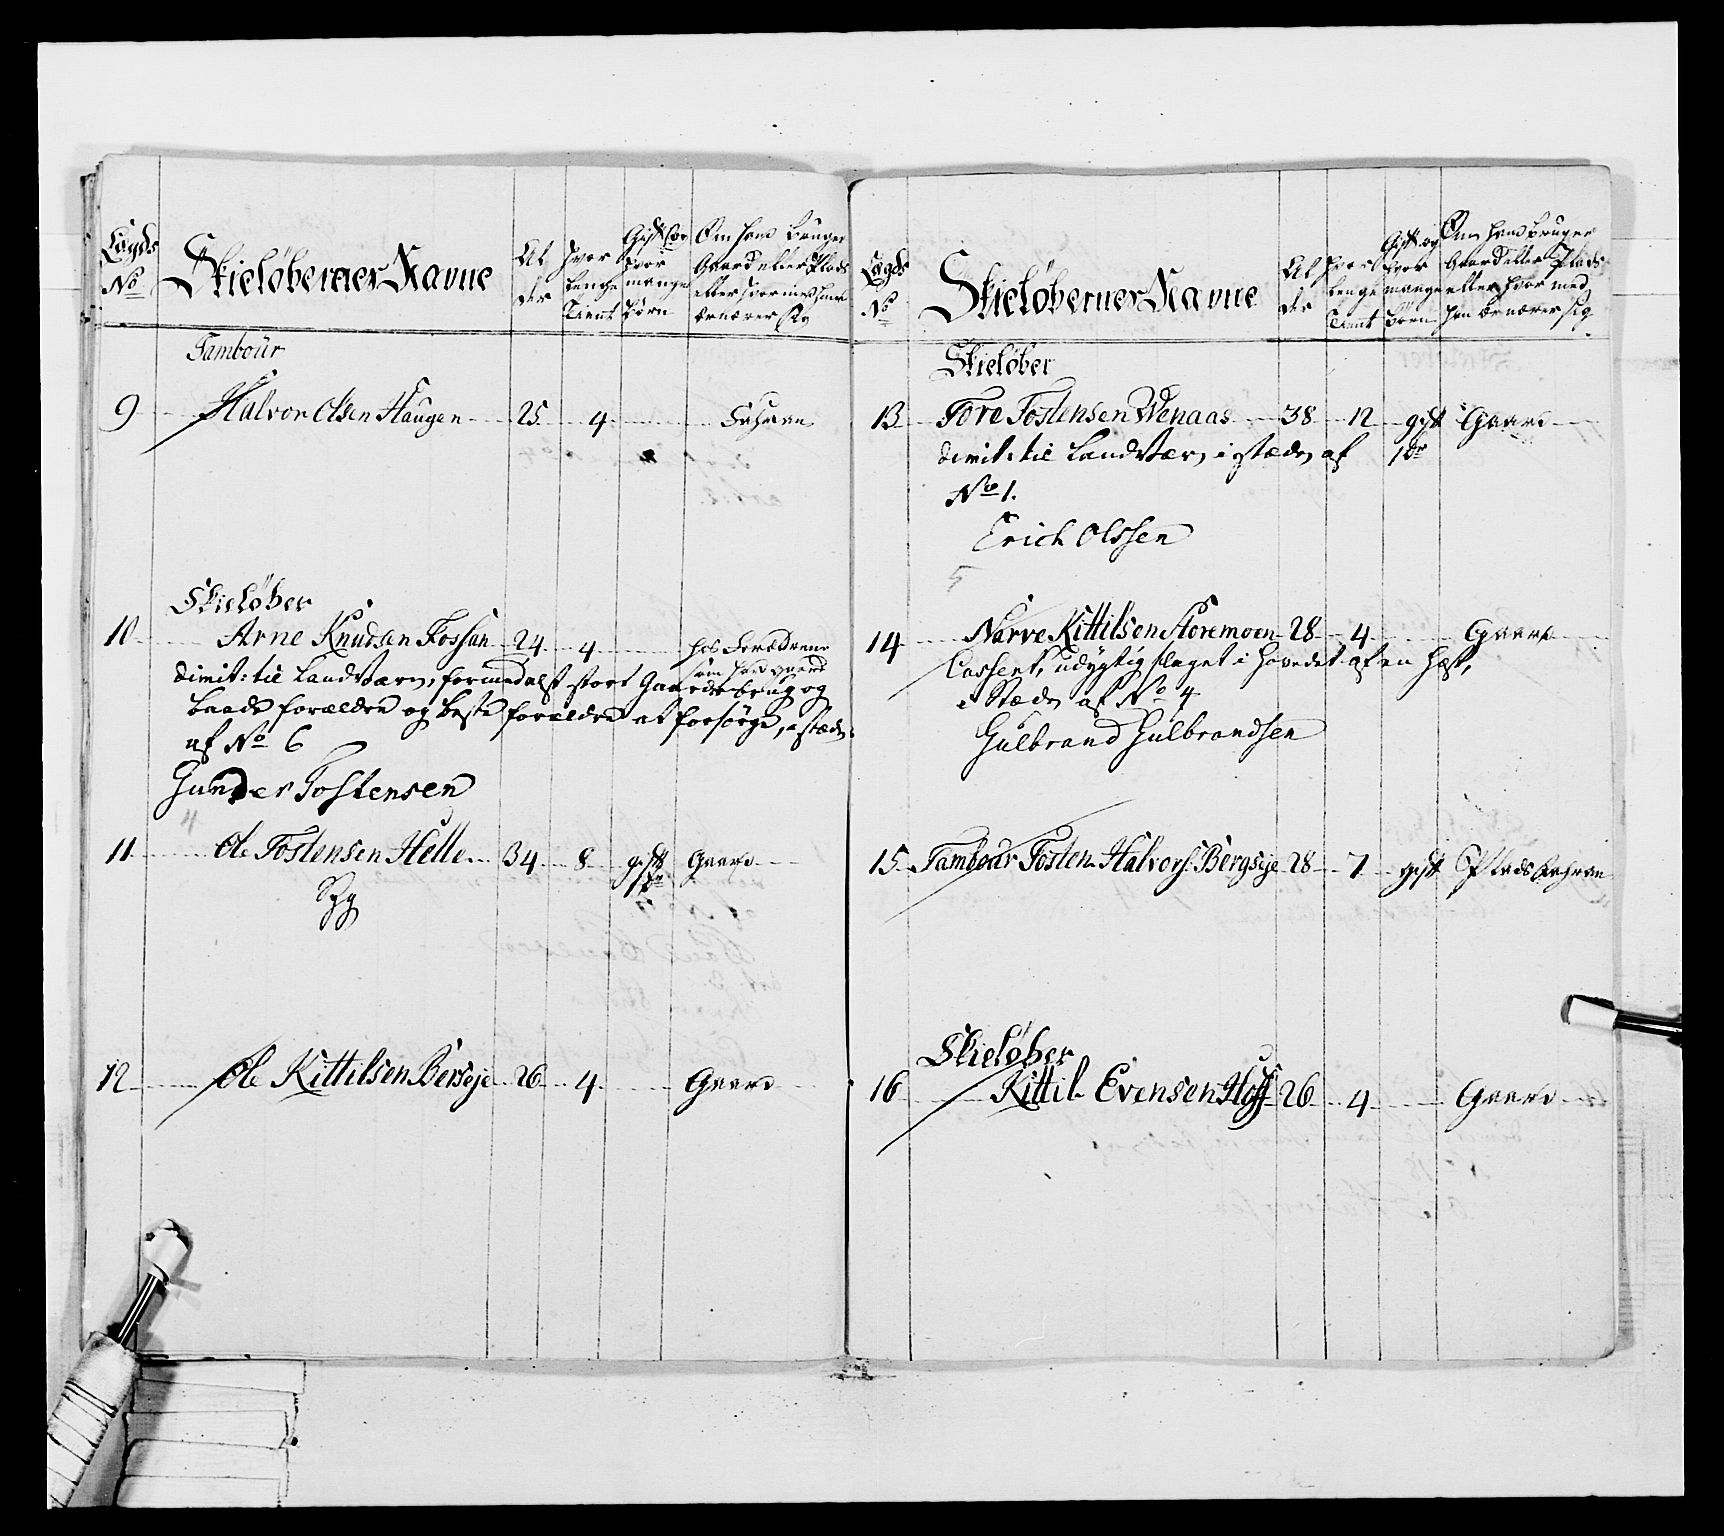 Lægds No
Skieløbernes Navne
Alder
hvor lenge Tient
Gift og hvor mange Børn
Om hand bruger Gaard eller Plads eller hvor med hand ernærer sig
Tambour
9 Halvor Olsen Haugen 25 4
Skieløber
10 Arne Knudsen Fossan 24 4 hos Forældrene
dimit: til Landværn, formedelst stort Gaardebrug og
baade forældre og beste forældre at forsørge, i stæden
af No 6
Gunder Tostensen
4
11 Ole Tostensen Helle 34 8 gift Gaard
Syg
12 Ole Kittilsen Berseje 26 4 Gaard
Lægds No
Skieløbernes Navne
Alder
hvor lenge Tient
Gift og hvor mange Børn
Om hand bruger Gaard eller Plads eller hvor med han ernærer sig
Skieløber
13 Tore Tostensen Wenaas 38 12 gift Gaard
dimit: til Landværn i stæden af
No 1.
Erich Olssen
5
14 Narve Kittilsen Storemoen 28 4 Gaard
Casseret, udygtig slaget i hovedet af en hæst,
i Stæden af No 4
Gulbrand Gulbrandsen
15 Tambour Tosten Halvors: Bergseje 28 7 gift Plads
Skieløber
16 Kittil Evensen Hoff 26 4 Gaard